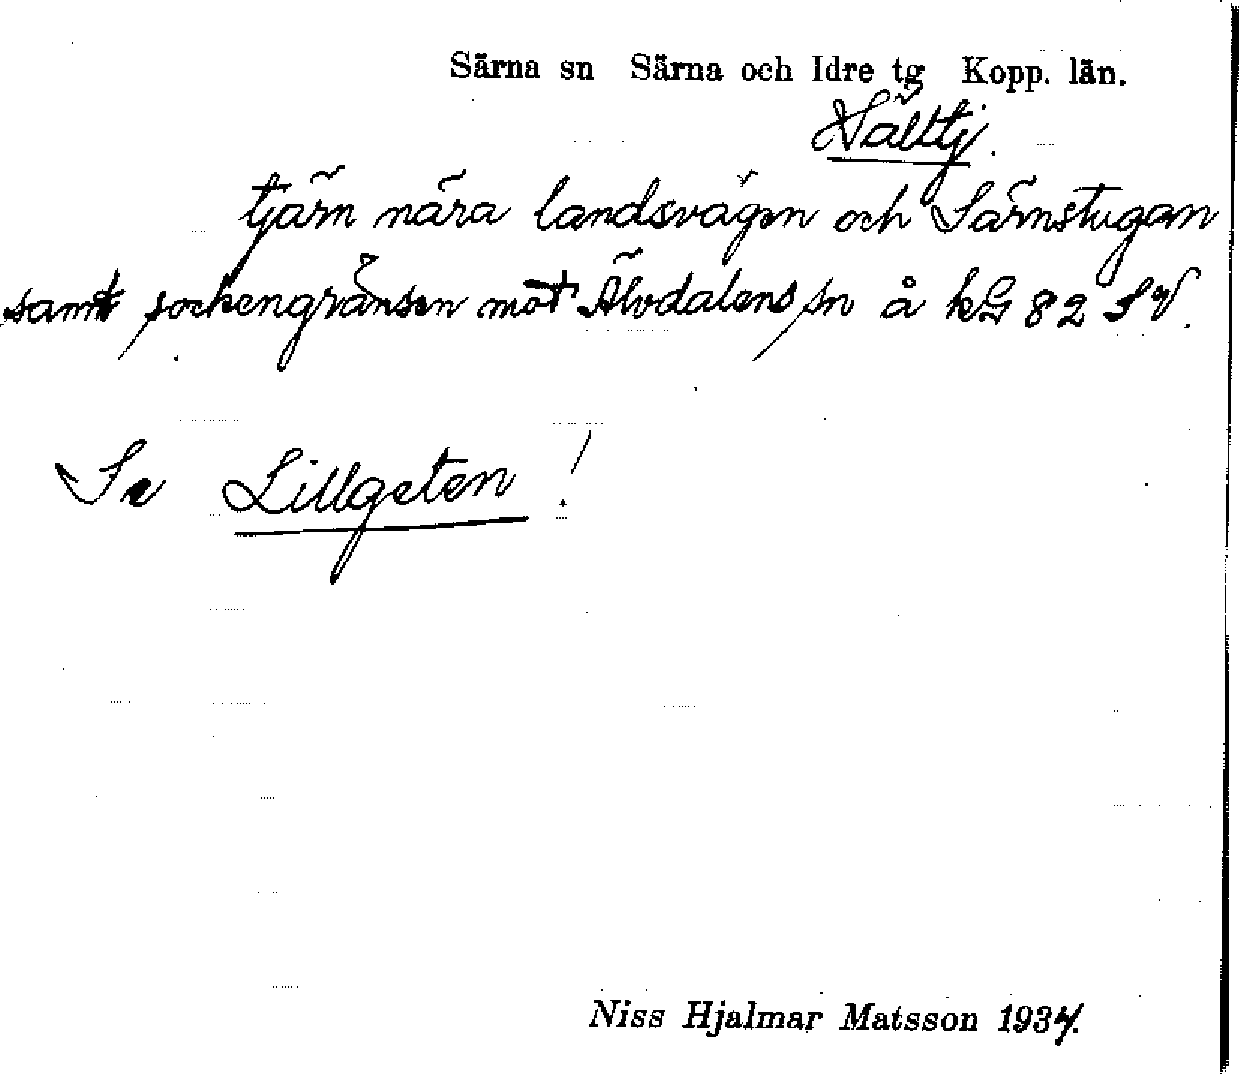 Särna sn Särna och Idre tg Kopp. län.
Vålltj.
tjärn nära landsvägen och Särnstugan
samt sockengränsen mot Älvdalens sn å kG 82 SV.
Se Lillgeten!
Niss Hjalmar Matsson 1934.